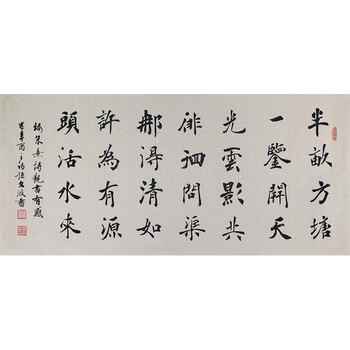 半畝方塘
一鑒開天
光雲影共
徘徊問渠
那得清如
許為有源
頭活水來
朱熹詩觀書有感